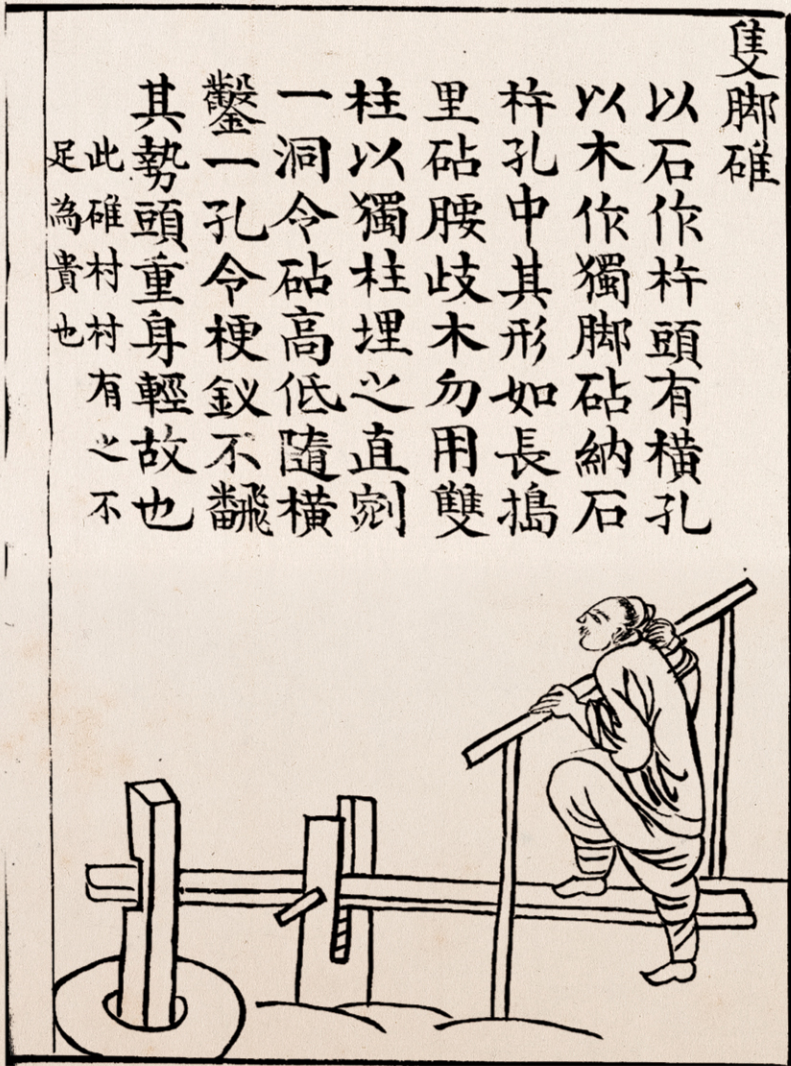 隻脚碓
以石作杵頭有橫孔
以木作獨脚砧納石
杵孔中其形如長搗
里砧腰歧木勿用雙
柱以獨柱埋之直剜
一洞令砧高低隨橫
鑿一孔令梗釵不飜
其勢頭重身輕故也
此碓村村有之不
足為貴也